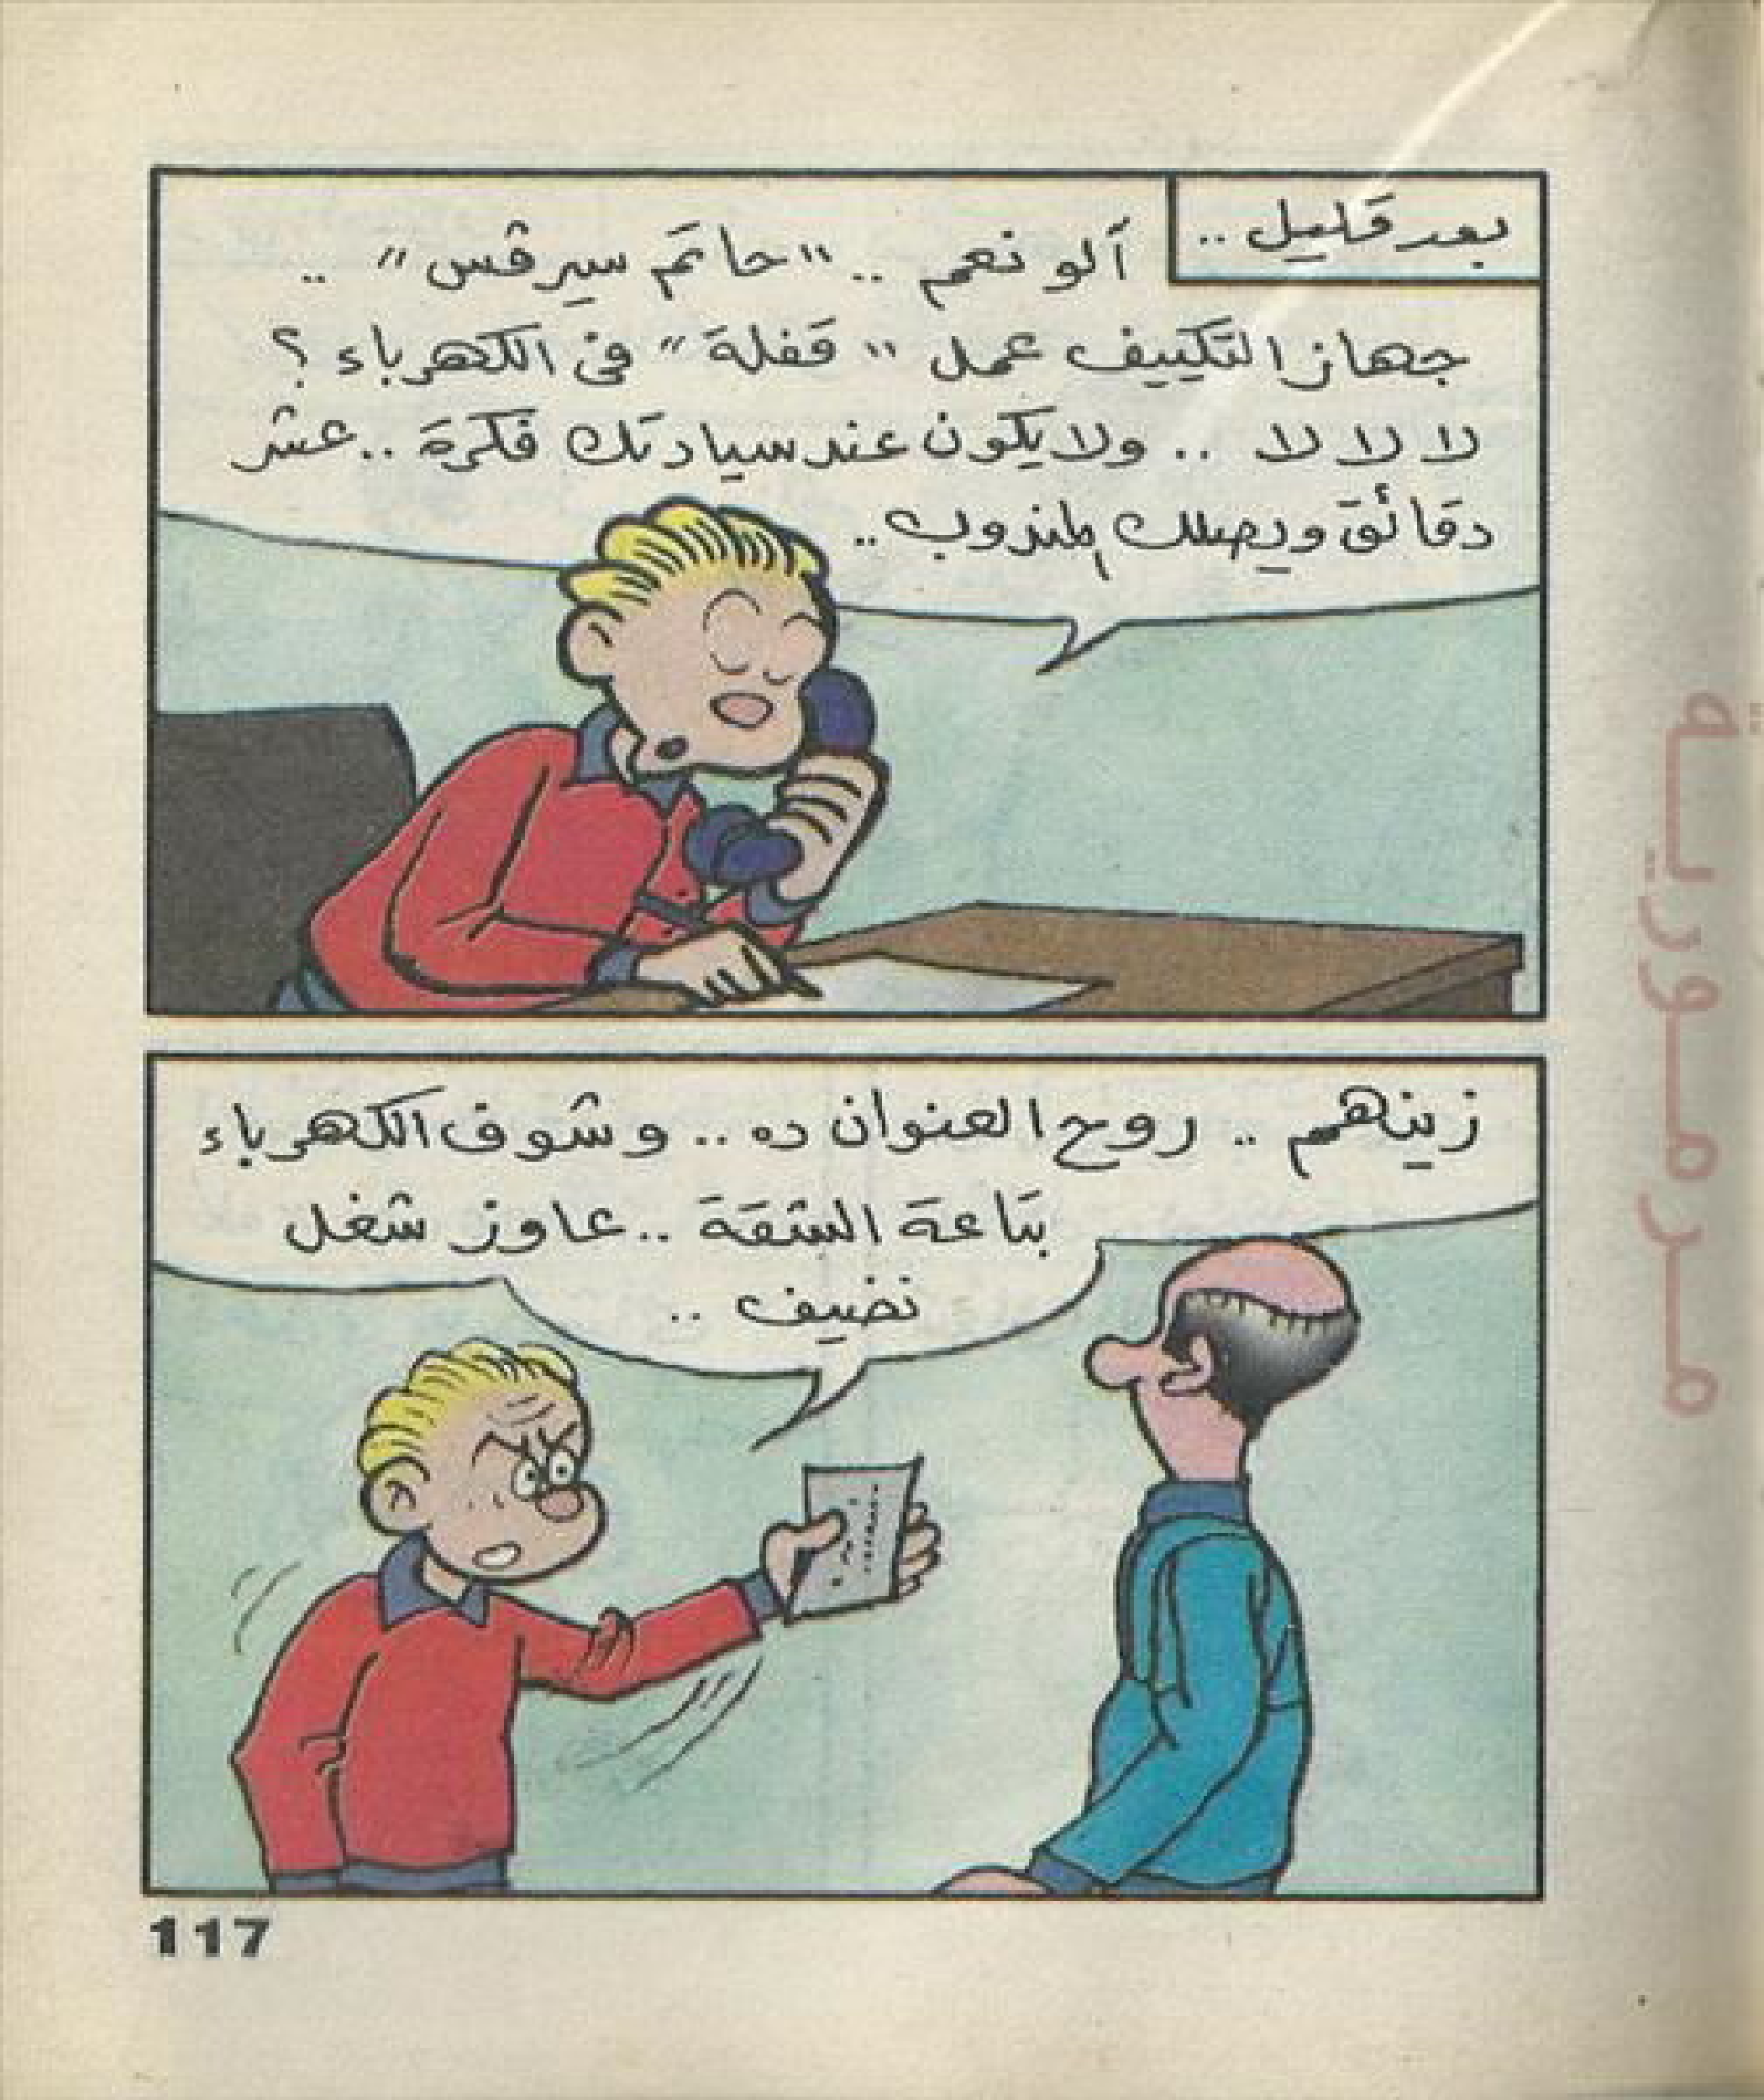 بعد قليل ..
ألو نعم .. "حاتم سيرفس" ..
جهاز التكييف عمل "قفلة" فى الكهرباء ؟
لا لا لا .. ولا يكون عند سيادتك فكرة .. عشر
دقائق ويصلك المندوب ..
زينهم .. روح العنوان ده .. وشوف الكهرباء
بتاعة الشقة .. عاوز شغل
نضيف ..
117
مرمورية